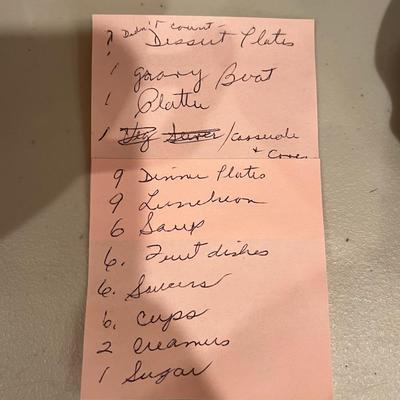 ? Didn't count - Dessert Plates
1 gravy Boat
1 Platter
1 Veg Server / Casserole
+ Cover
9 Dinner Plates
9 Luncheon
6 Soup
6. Fruit dishes
6. Saucers
6. Cups
2 Creamers
1 Sugar